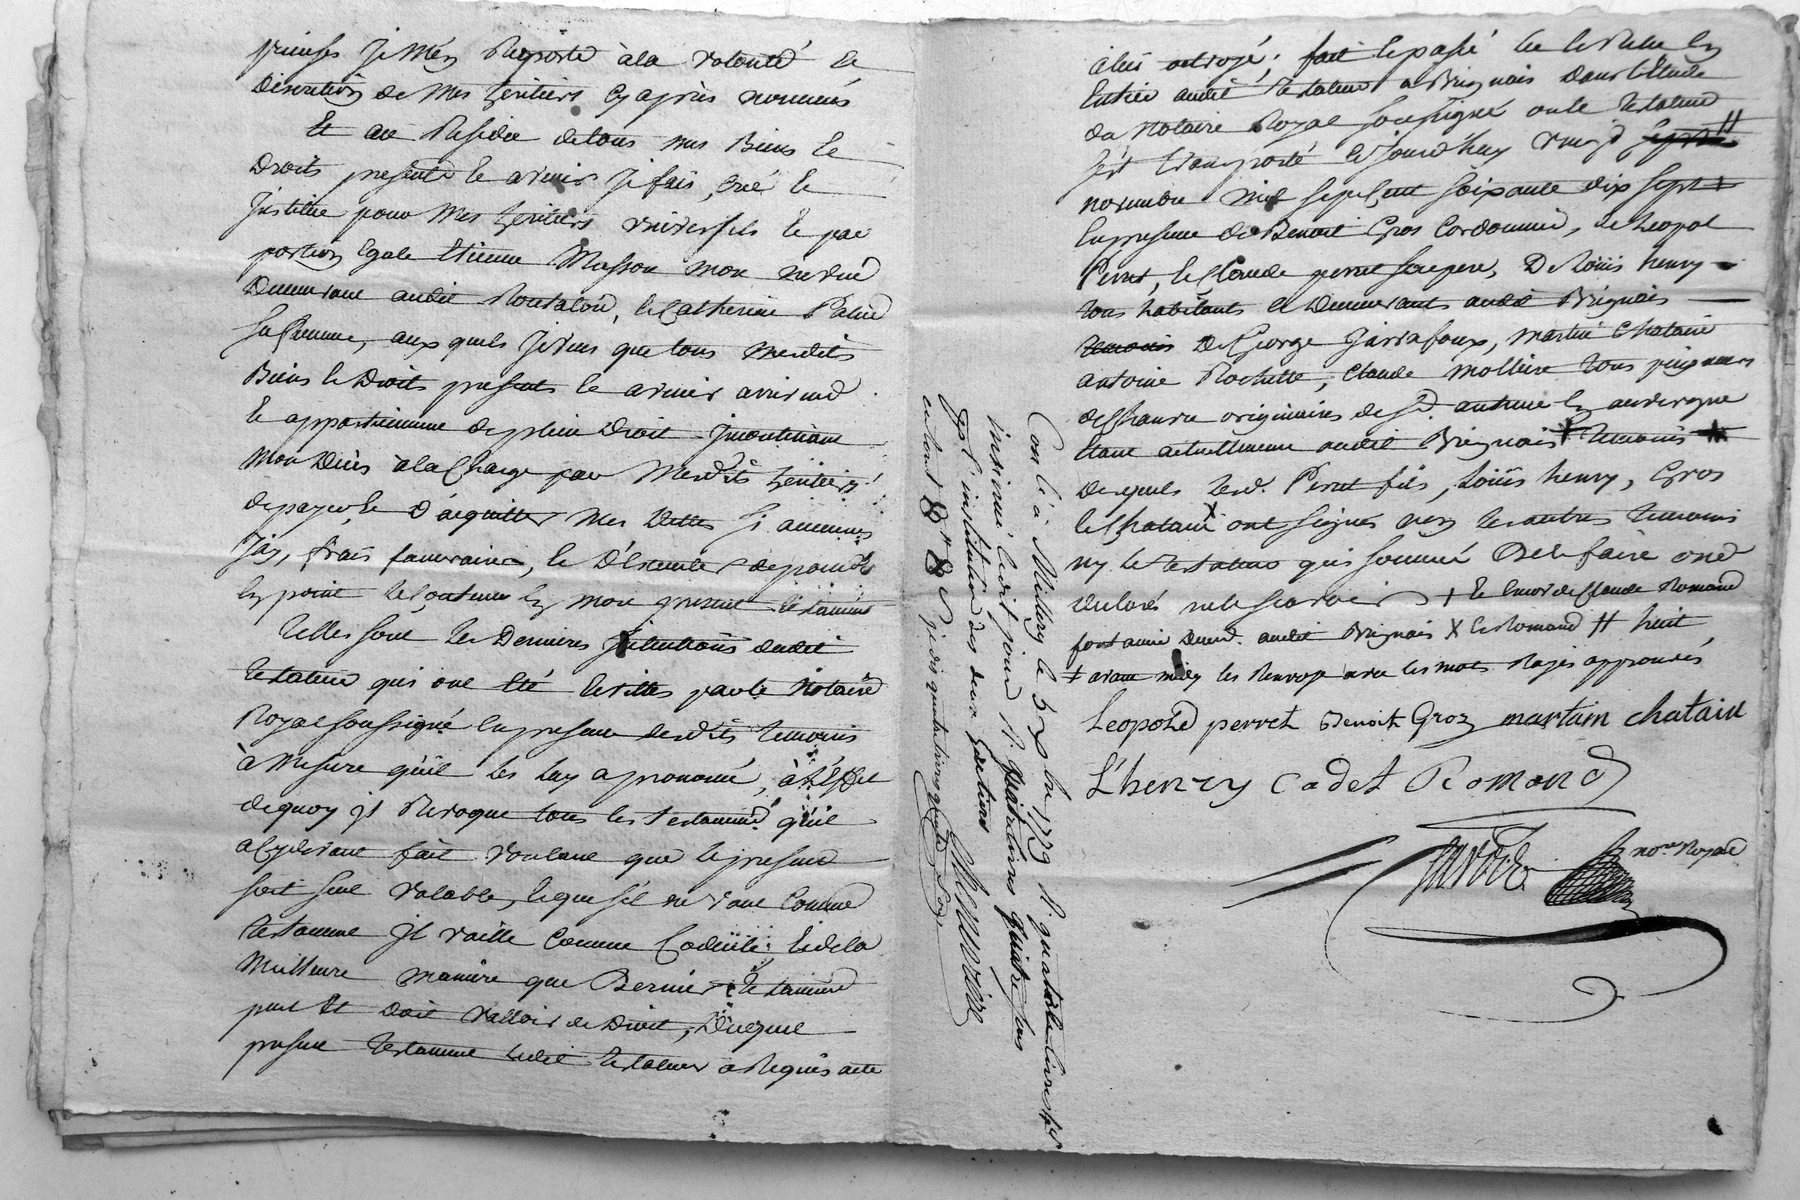 prieres je m'en Raporte à la volonté et
Discretion de mes heritiers cy après nommés
Et au Residu de tous mes Biens et
Droits presents et avenir je fais, créé et
jnstitue pour mes heritiers universels et par
portion Egale Etienne Masson mon neveu
Demeurant audit Rontalon, et Catherine
sa femme, aux quels je veux que tous mesdits
Biens et Droits presents et avenir arrivent
et appartiennent de plein Droit jncontinant
mon Décès à la Charge par mesdits heritiers
de payer, et d'acquitter mes Dettes si aucunes
j'ay, frais funeraires, et d'Executer de point
en point le contenu en mon present testament
Telles sont les Dernieres jntentions dudit
testateur qui ont été Ecrittes par le Notaire
Royal soussigné en presence desdits temoins
à Mesure qu'il les luy a prononcé, à l'éffet
de quoy jl Revoque tous les testament qu'il
a cy devant fait voulant que le present
soit seul valable, et que s'il ne vaut comme
testament jl vaille comme Codicile, et de la
Meilleure maniere que Dernier testament
peut et doit valloir de Droit, Duquel
present testament ledit testateur a Requis acte
Con.lé à Millery le 5 Xbre 1779 R. quatorze livres
insinué ledit jour R. quatre livres quatre sous
pr l'institution des deux heritiers
a lui octroyé; fait et passé lu et Relu en
Entier audit testateur a Brignais dans l'Etude
du Notaire Royal soussigné ou le testateur
s'est transporté cejourd'huy vingt #
novembre mil sept cent soixante dix sept ‡
En presence de Benoit Gros Cordonnier, de Leopol
Perret, et Claude perret son pere, De Loüis henry
tous habitants et Demeurants audit Brignais
temoins De George Jarrafoux, martin Chatain
antoine Rochette, Claude molliere tous peigneurs
de Chanvre originaires de St. antoine en auvergne
Etant actuellement audit Brignais + temoins
Desquels led. Perret fils, Loüis henry, Gros
et Chatain X ont signés non les autres temoins
ny le testateur qui sommé De le faire ont
declarés ne le sçavoir + et Encor de Claude Romand
fontainier Demt. audit Brignais X et Romand # huit
‡ avant midy les Renvoys avec les mots Rayés approuvés
Leopold perret Benoit Groz martain chatain
L'henry Cadet Romand
nore Royal